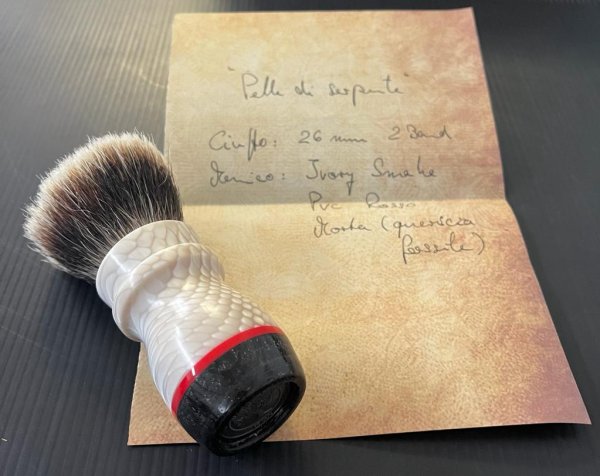 "Pelle di serpente"
Ciuffo: 26 mm 2 Band
Manico: Ivory Snake
Pvc Rosso
Morta (quercia
fossile)